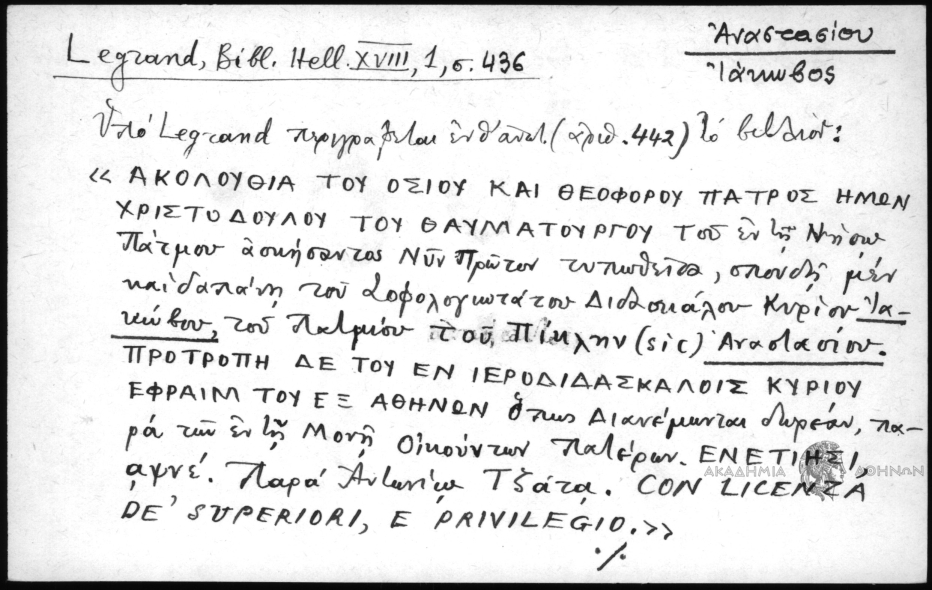 Legrand, Bibl. Hell. XVIII, 1, σ. 436
Ἀναστασίου
Ἰάκωβος
Ὑπό Legrand περιγράφεται ἐνθ' ἀνωτ. (ἀριθ. 442) τό βιβλίον:
« ΑΚΟΛΟΥΘΙΑ ΤΟΥ ΟΣΙΟΥ ΚΑΙ ΘΕΟΦΟΡΟΥ ΠΑΤΡΟΣ ΗΜΩΝ
ΧΡΙΣΤΟΔΟΥΛΟΥ ΤΟΥ ΘΑΥΜΑΤΟΥΡΓΟΥ Τοῦ ἐν τῇ Νήσῳ
Πάτμου ἀσκήσαντος Νῦν Πρῶτον τυπωθεῖσα, σπουδῇ μέν
καί δαπάνῃ τοῦ Σοφολογιωτάτου Διδασκάλου Κυρίου Ἰα-
κώβου, τοῦ Πατμίου τοῦ Πίκλην (sic) Ἀναστασίου.
ΠΡΟΤΡΟΠΗ ΔΕ ΤΟΥ ΕΝ ΙΕΡΟΔΙΔΑΣΚΑΛΟΙΣ ΚΥΡΙΟΥ
ΕΦΡΑΙΜ ΤΟΥ ΕΞ ΑΘΗΝΩΝ ὅπως Διανέμωνται δωρεάν, πα-
ρά τῶν ἐν τῇ Μονῇ Οἰκούντων Πατέρων. ΕΝΕΤΙΗΣΙ,
αψνέ. Παρά Ἀντωνίῳ Τζάτα. CON LICENZA
DE' SUPERIORI, E PRIVILEGIO.»
./.
ΑΚΑΔΗΜΙΑ ΑΘΗΝΩΝ